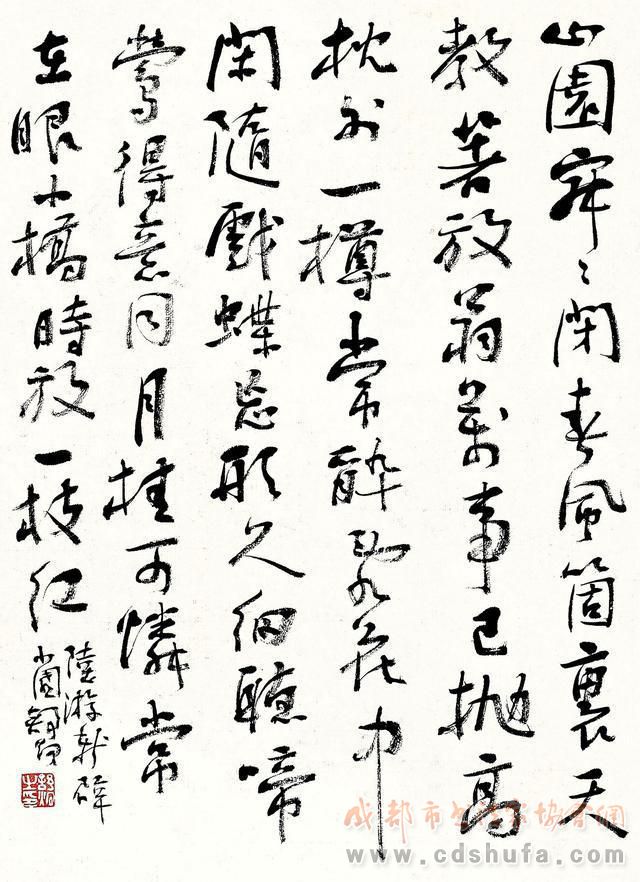 山園寂〻閉春風箇裏天
教著放翁萬事已拋高
枕外一樽常醉亂花中
閑隨戲蝶忘形久細聽啼
鶯得意同月桂可憐常
在眼小橋時放一枝紅
陸游新辟
小園舒炯
成都市书法家協會網
www.cdshufa.com